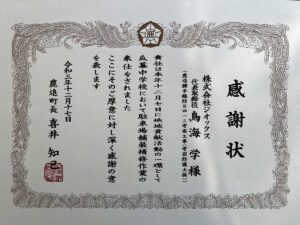 感謝状
株式会社ジオックス
代表取締役 鳥海 学 様
貴社は本年十二月七日に地域貢献活動の一環として
瓜幕中学校において駐車場舗装補修作業の
奉仕をされました
ここにそのご厚意に対し深く感謝の意
を表します
令和三年十二月十七日
鹿追町長 喜井 知己